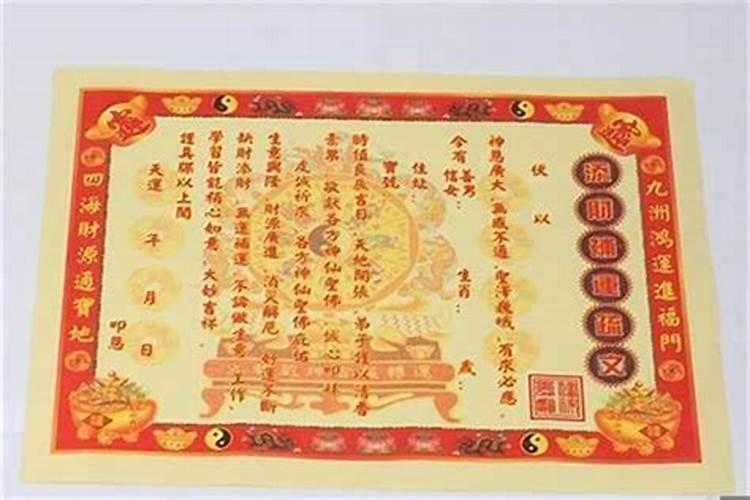 九洲鴻運進福門
添財補運疏文
伏以
神恩廣大 無感不通 聖澤巍峨 有求必應
今有善男信女： 生肖： 歲：
住址：
寶號
時值良辰吉日 天地開張 弟子謹以清香
素菓 敬獻各方神仙聖佛 誠心叩拜
虔誠祈求 各方神仙聖佛庇佑
生意興隆 財源廣進 消災解厄 好運不斷
缺財添財 無運補運 不論做生意 工作、
學習皆能稱心如意 大妙吉祥
謹具疏以上聞
天運 年 月 日
叩恩
四海財源通寶地